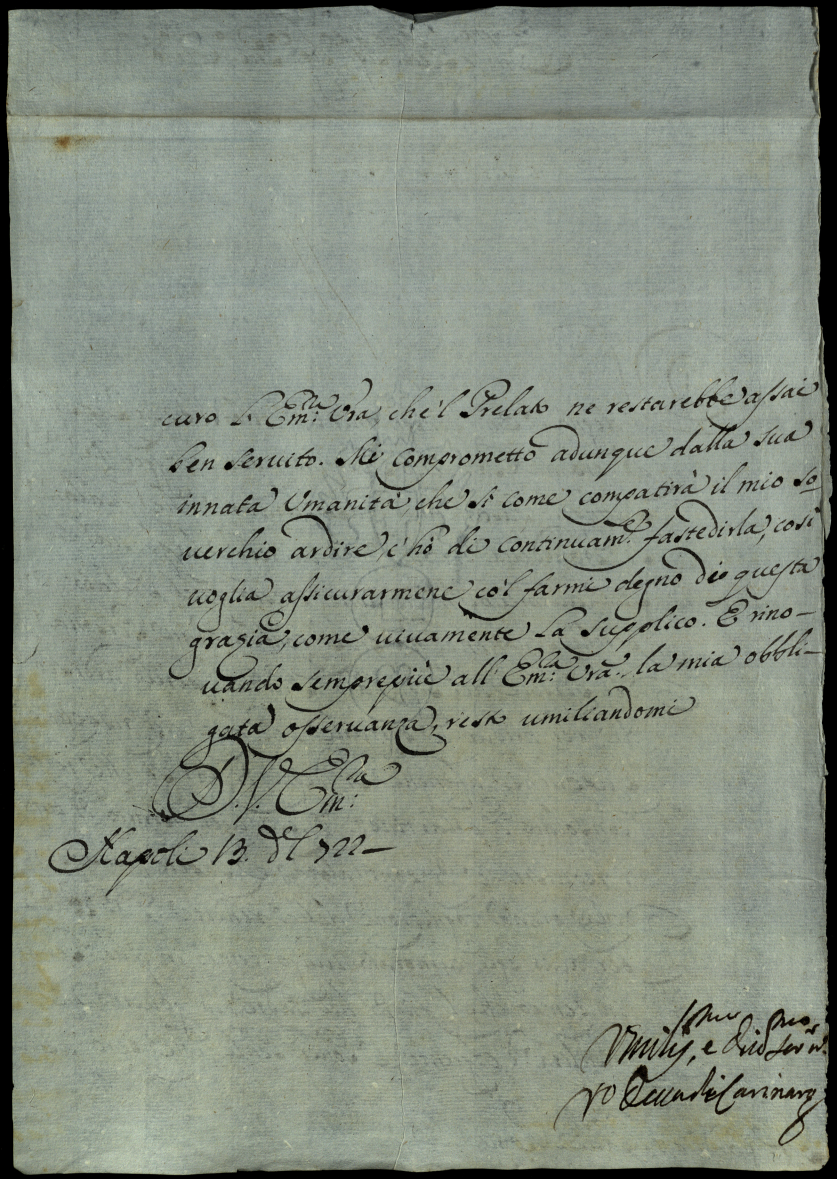 curo l'Em:za Vra, che'l Prelato ne restarebbe assai
ben servito. Mi comprometto adunque dalla sua
innata Umanità che si come compatirà il mio so-
verchio ardire, c'hò di continuam.te fastedirla, così
voglia assicurarmene co'l farmi degno di questa
grazia, come vivamente La supplico. E rino-
vando semprepiù all'Em:za Vra., la mia obbli-
gata osservanza, resto umiliandomi
D. V. Em:za
Napoli 13. 722
Umiliss.mo, e Div.mo Ser.re
Duca di Carinaro